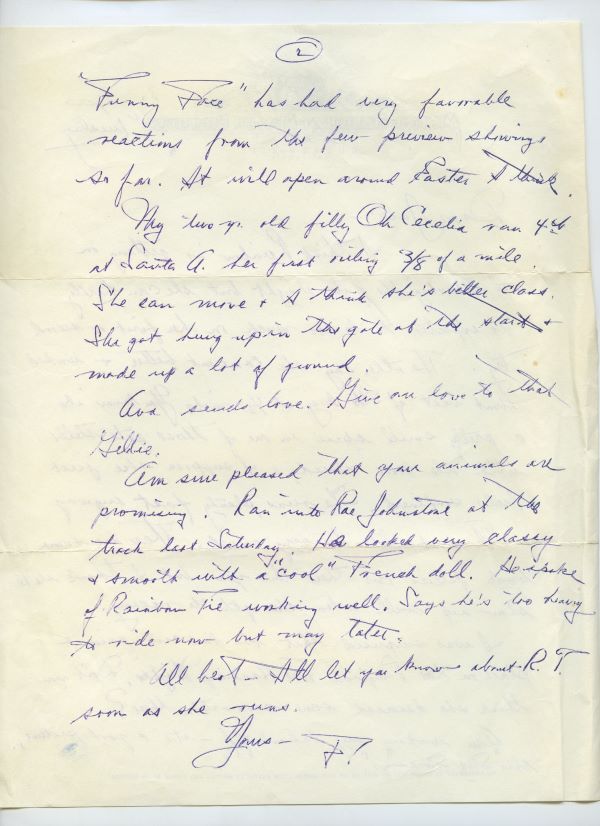 2
"Funny Face" has had very favorable
reactions from the few preview showings
so far. It will open around Easter I think.
My two yr. old filly Oh Cecelia ran 4th
at Santa A. her first outing 3/8 of a mile.
She can move & I think she's better class.
She got hung up in the gate at the start &
made up a lot of ground.
Ava sends love. Give our love to that
Gillie.
Am sure pleased that your animals are
promising. Ran into Rae Johnstone at the
track last Saturday. He looked very classy
& smooth with a "cool" French doll. He spoke
of Rainbow Tie working well. Says he's too heavy
to ride now but may later.
All best - I'll let you know about R. T.
soon as she runs.
Yours - F.